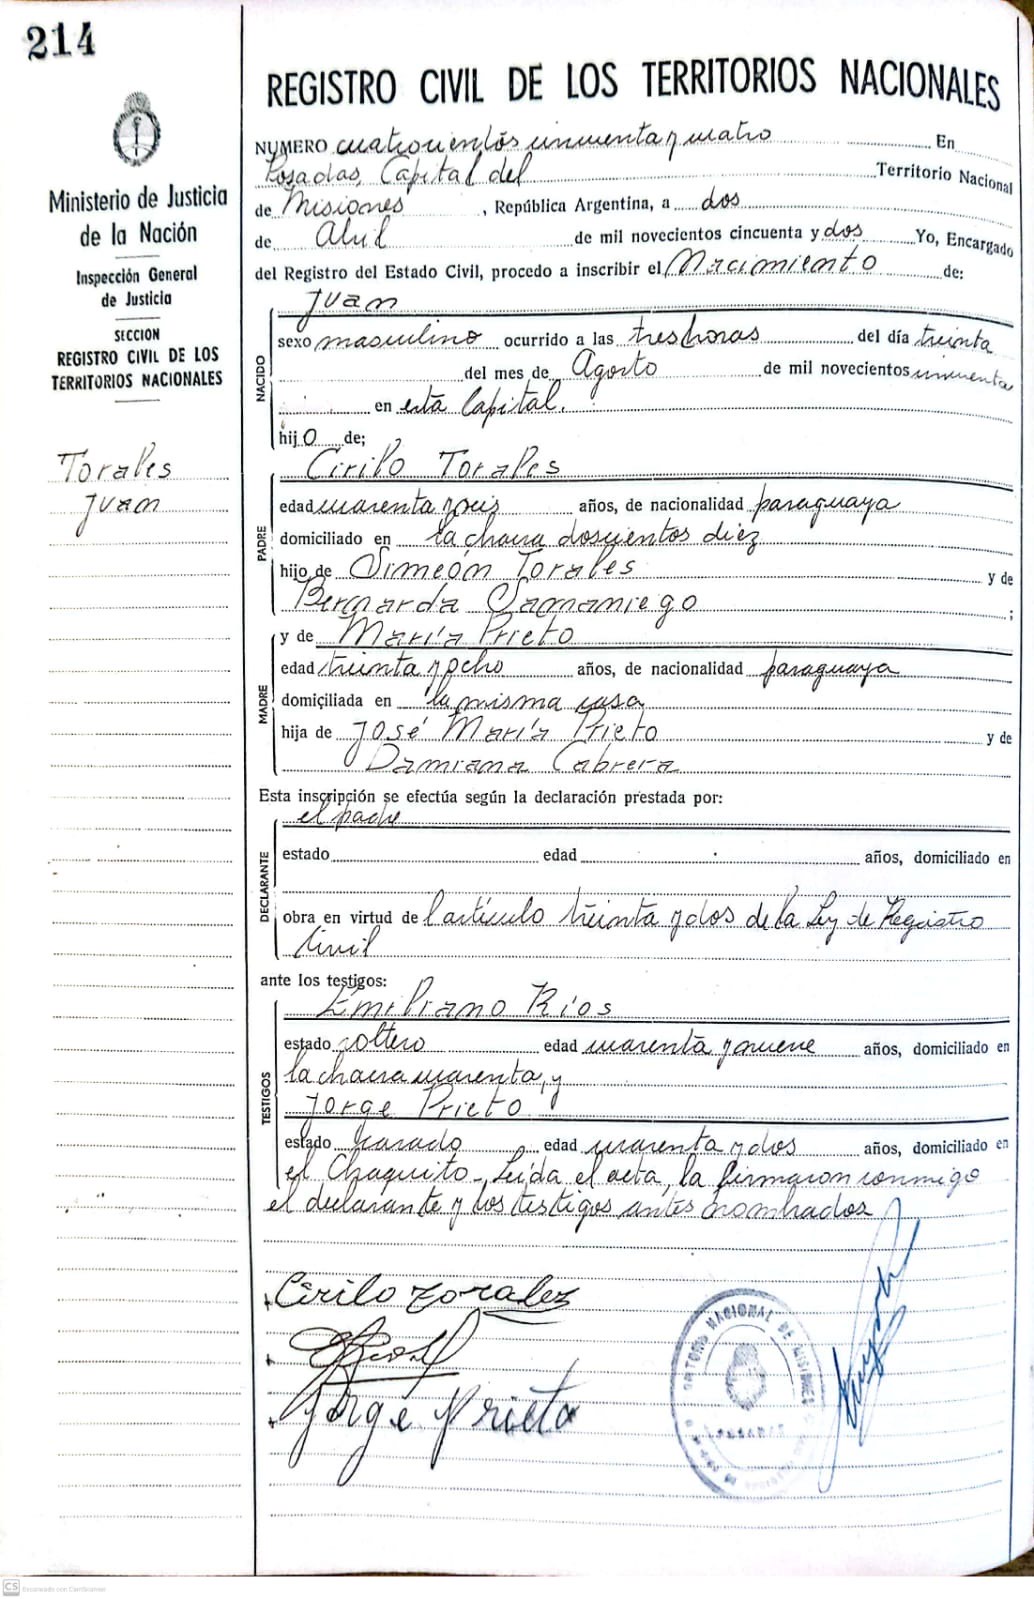 214
REGISTRO CIVIL DE LOS TERRITORIOS NACIONALES
Ministerio de Justicia
de la Nación
Inspección General
de Justicia
SECCION
REGISTRO CIVIL DE LOS
TERRITORIOS NACIONALES
Torales
Juan
NUMERO cuatrocientos cincuenta y cuatro En
Posadas, Capital del Territorio Nacional
de Misiones, República Argentina, a dos
de Abril de mil novecientos cincuenta y dos Yo, Encargado
del Registro del Estado Civil, procedo a inscribir el Nacimiento de:
NACIDO
Juan
sexo masculino ocurrido a las tres horas del día treinta
del mes de Agosto de mil novecientos cincuenta
en esta Capital.
hijo de;
PADRE
Cirilo Torales
edad cuarenta y seis años, de nacionalidad paraguaya
domiciliado en la chacra doscientos diez
hijo de Simeón Torales y de
Bernarda Samaniego ;
MADRE
y de María Prieto
edad treinta y ocho años, de nacionalidad paraguaya
domiciliada en la misma casa
hija de José María Prieto y de
Damiana Cabrera
Esta inscripción se efectúa según la declaración prestada por:
DECLARANTE
el padre
estado edad años, domiciliado en
obra en virtud de l artículo treinta y dos de la Ley de Registro
Civil
ante los testigos:
TESTIGOS
Emiliano Ríos
estado soltero edad cuarenta y nueve años, domiciliado en
la chacra cuarenta, y
Jorge Prieto
estado casado edad cuarenta y dos años, domiciliado en
el Chaquito - Leída el acta, la firmaron conmigo
el declarante y los testigos antes nombrados
Cirilo Torales
Jorge Prieto
NACIONAL DE MISIONES
POSADAS
CS Escaneado con CamScanner